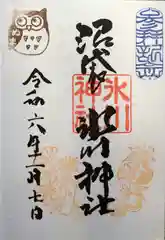 沼袋
氷川神社
氷川
神社
令和六年一月七日